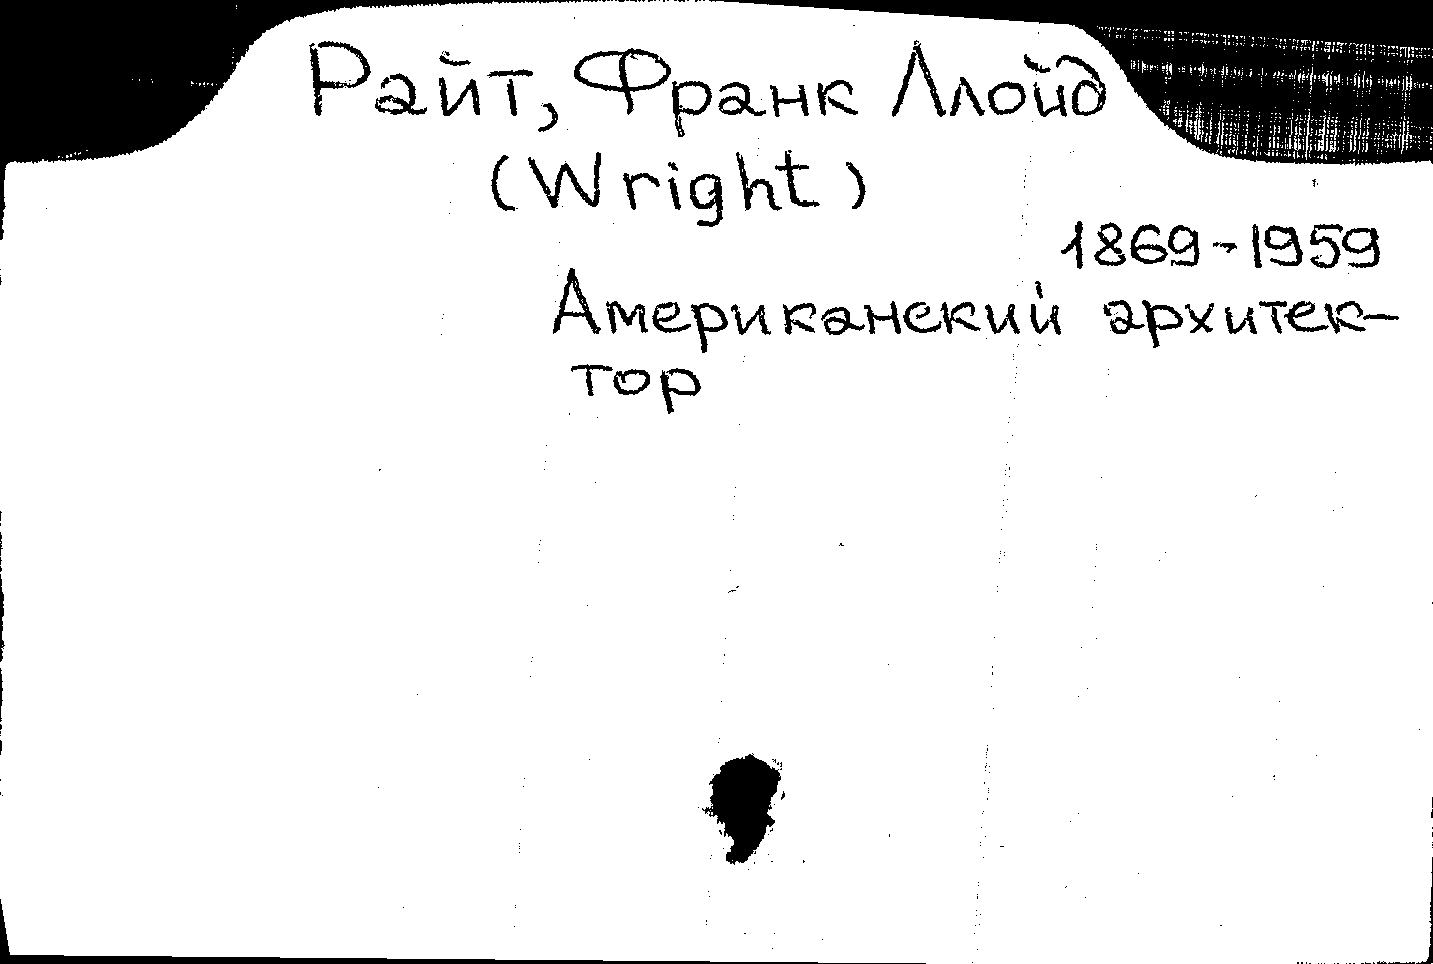 Райт, Франк Ллойд
(Wright)
1869-1959
Американский архитек-
тор